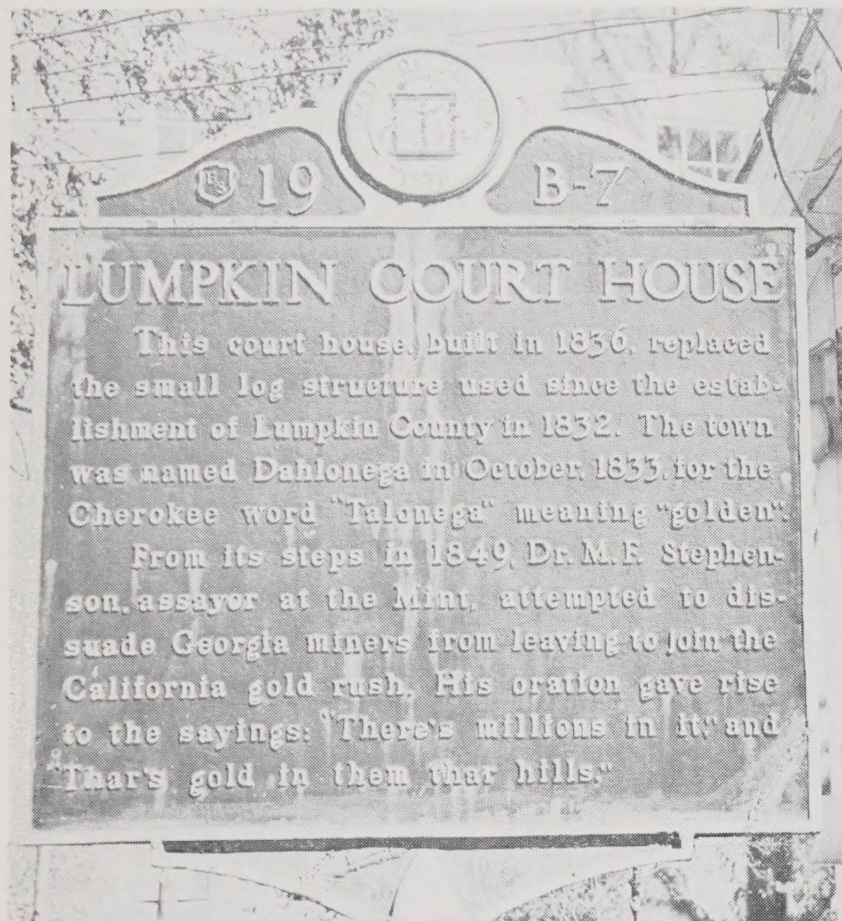 19 B-7
LUMPKIN COURT HOUSE
This court house, built in 1836, replaced
the small log structure used since the estab-
lishment of Lumpkin County in 1832. The town
was named Dahlonega in October, 1833, for the
Cherokee word "Talonega" meaning "golden".
From its steps in 1849, Dr. M. F. Stephen-
son, assayor at the Mint, attempted to dis-
suade Georgia miners from leaving to join the
California gold rush. His oration gave rise
to the sayings: "There's millions in it," and
"Thar's gold in them thar hills."